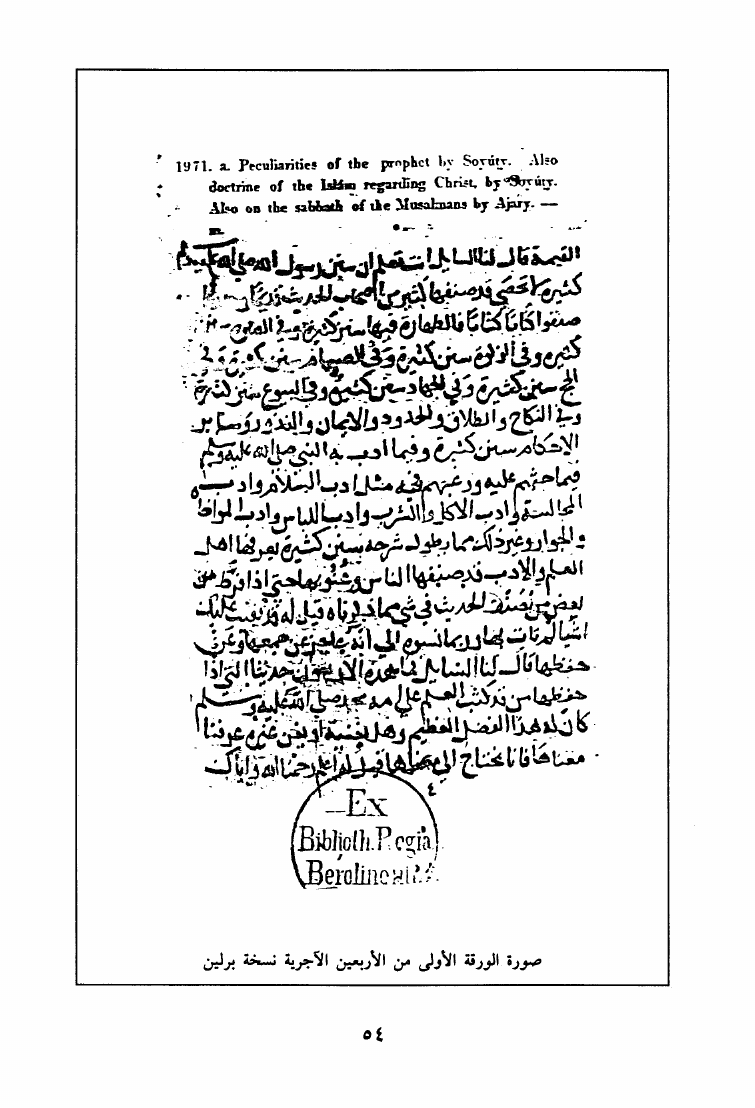 1971. a. Peculiarities of the prophet by Soyúty. Also
doctrine of the Islám regarding Christ, by Soyúty.
Also on the sabbath of the Musalmans by Ajáry. —
القيمة قال لنا السايل است تعلم ان سنن رسول الله صلى الله عليه وسلم
كثيرة لا تحصى قد صنفها كثير من اصحاب الحديث
صنفوا كتابا كتابا فالطهارة فيها سنن كثيرة وفي الصلوة سنن
كثيرة وفي الزكوة سنن كثيرة وفي الصيام سنن كثيرة وفي
الحج سنن كثيرة وفي الجهاد سنن كثيرة وفي البيوع سنن كثيرة
وفي النكاح والطلاق والحدود والايمان والنذور وساير
الاحكام سنن كثيرة وفيما ادب به النبي صلى الله عليه وسلم
فيما حثهم عليه ورغبهم فيه مثل ادب السلام وادب
المجالسة وادب الاكل والشرب وادب اللباس وادب
والجوار وغير ذلك مما يطول شرحه سنن كثيرة يعرفها اهل
العلم والادب قد صنفها الناس وعنوا بها حتى اذا
بعض من يصنف الحديث في شي مما ذكرناه قيل له قد بقيت عليك
اشيا لم تات بها وربما نسبوه الى انه عاجز عن جمعها وعن
حفظها قال لنا السايل فما هذه الاربعون حديثا التي اذا
حفظها من قد كتب العلم على امة محمد صلى الله عليه وسلم
كان له هذا الفضل العظيم وهل هي بعينها او هي غيره عرفنا
معناها فانا نحتاج الى علمها قيل له اعلم رحمنا الله واياك
٤
Ex
Biblioth. Regia
Berolinensi.
صورة الورقة الأولى من الأربعين الآجرية نسخة برلين
٥٤